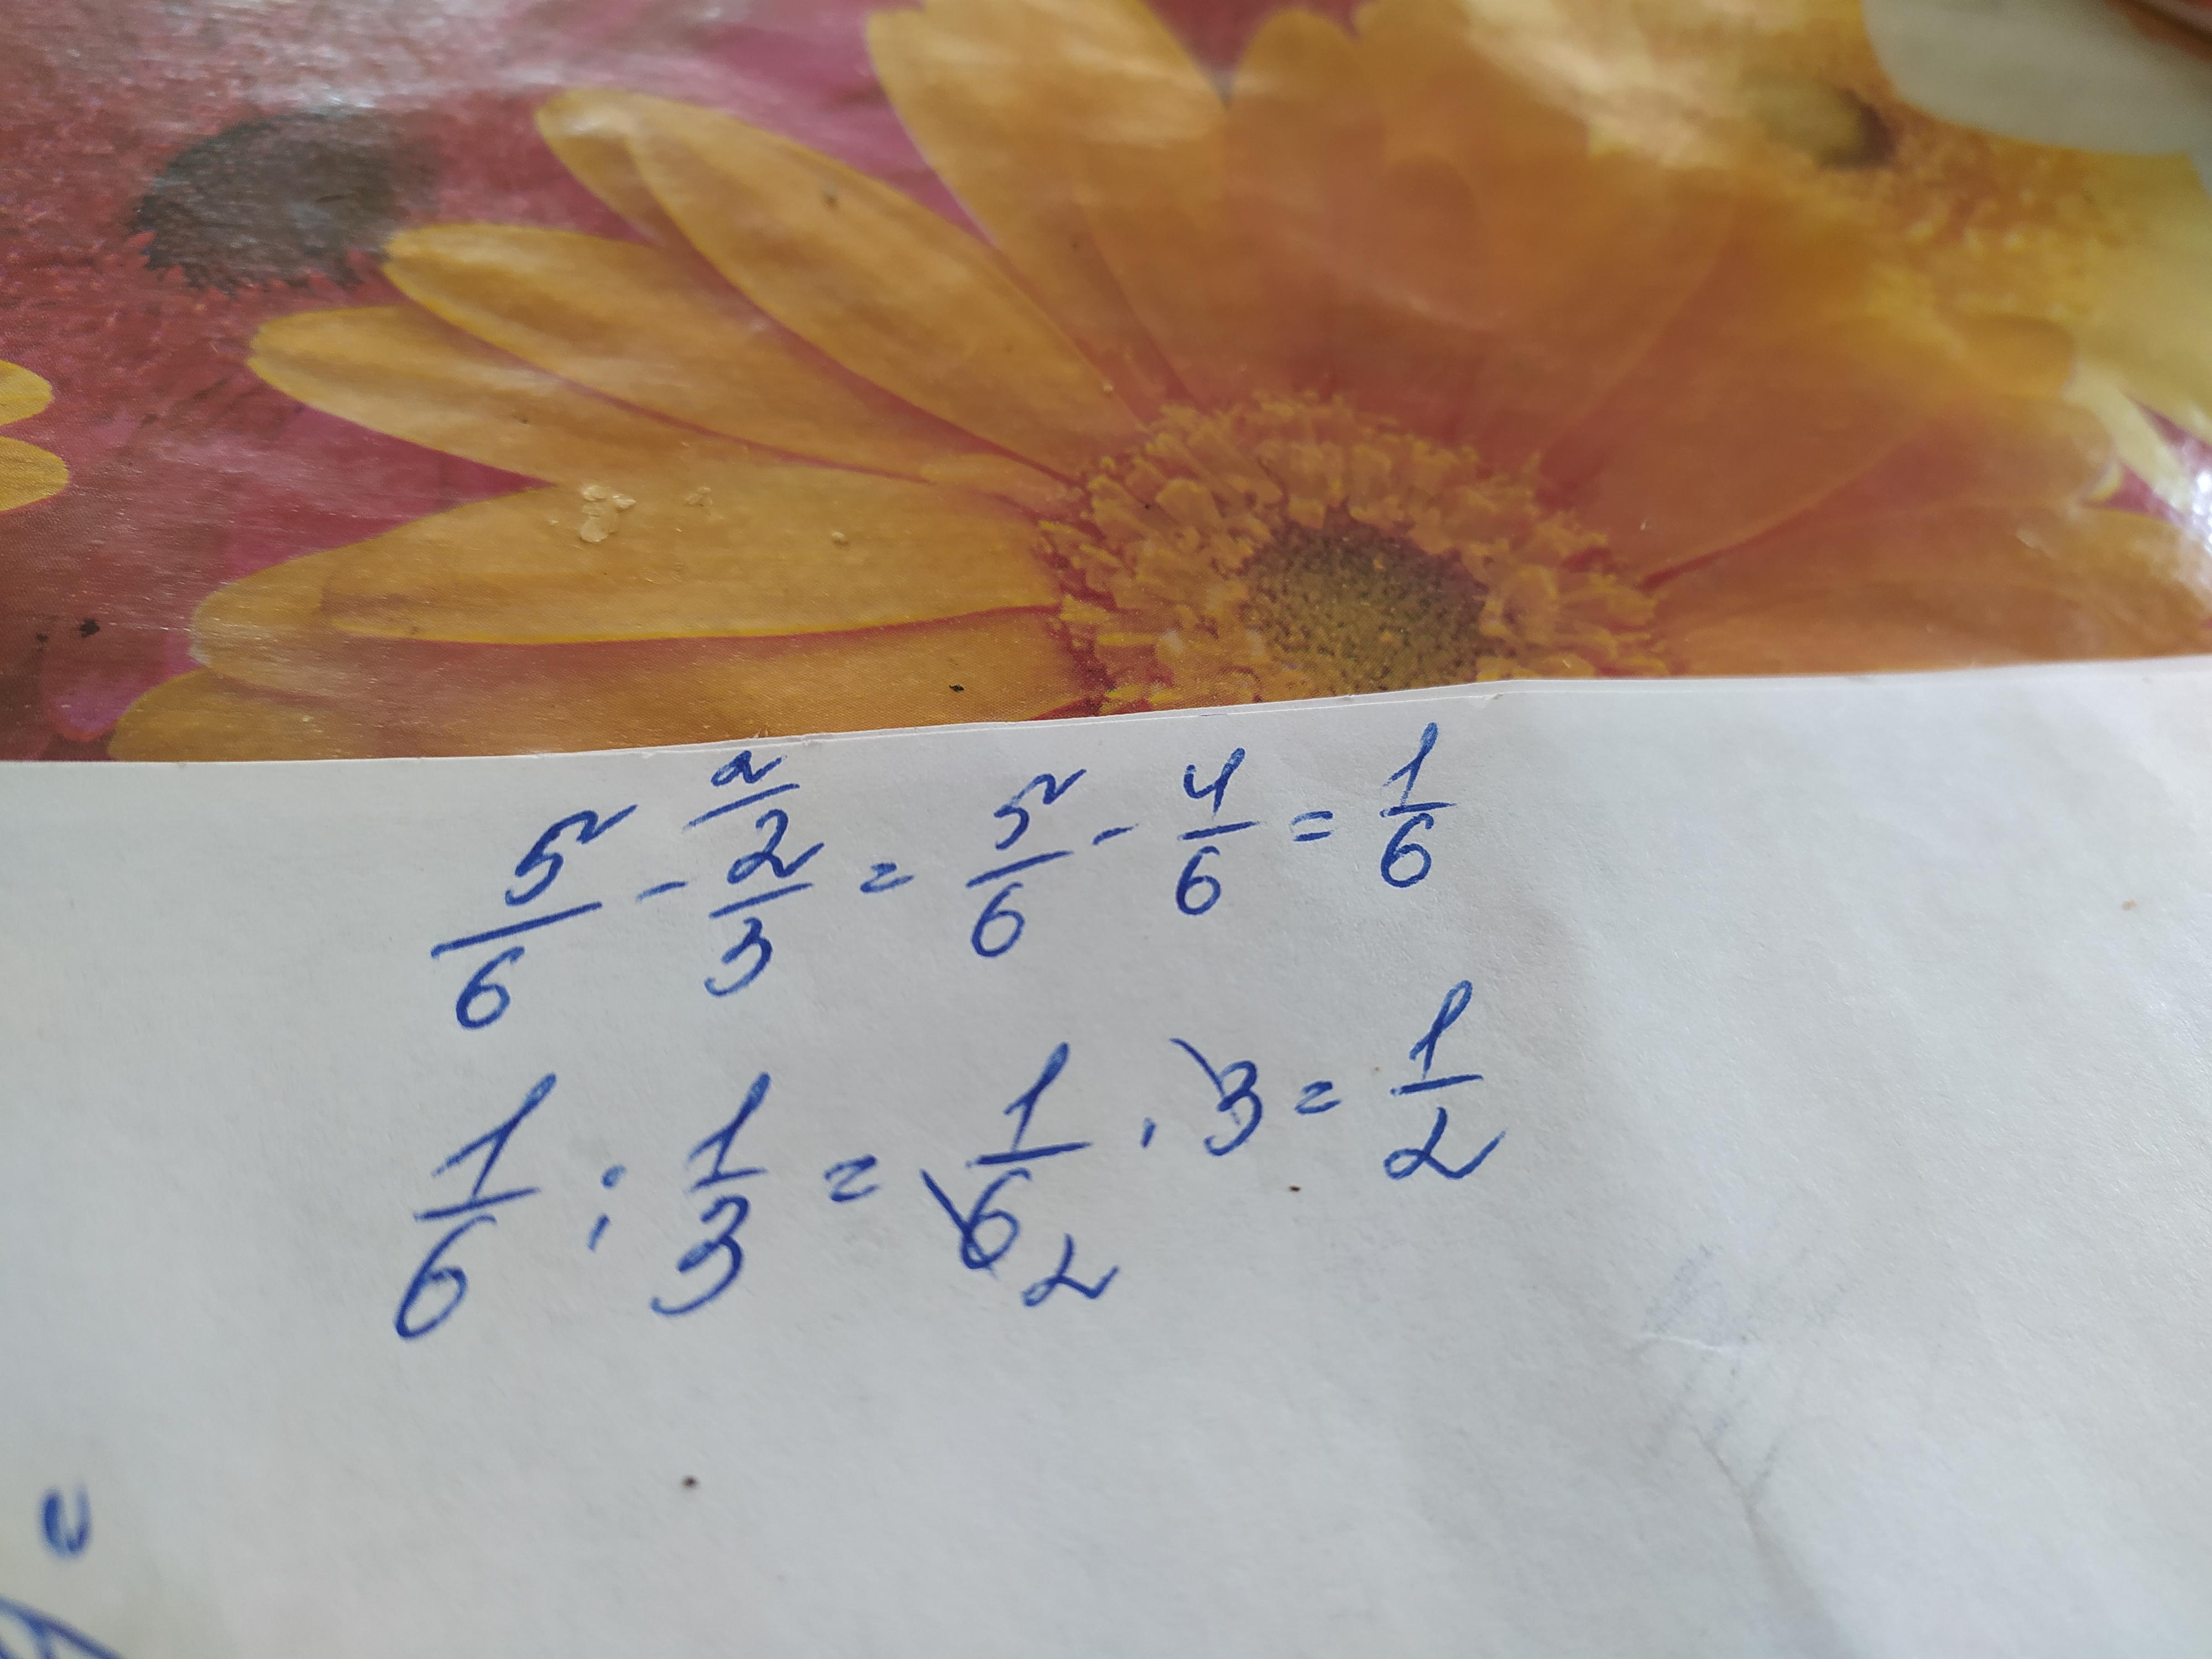 2
5/6 - 2/3 = 5/6 - 4/6 = 1/6
1/6 : 1/3 = 1/6 2 · 3 = 1/2
=